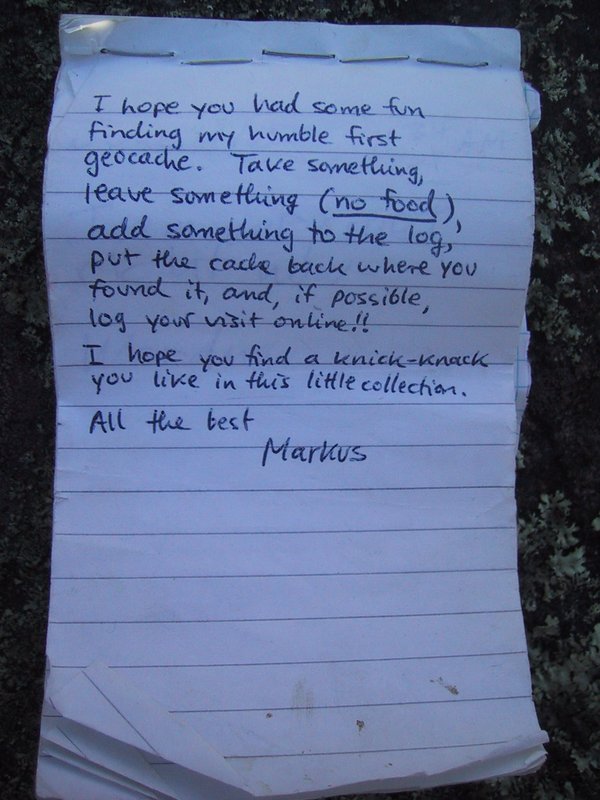 I hope you had some fun
finding my humble first
geocache. Take something,
leave something (no food),
add something to the log,
put the cache back where you
found it, and, if possible,
log your visit online!!
I hope you find a knick-knack
you like in this little collection.
All the best
Markus